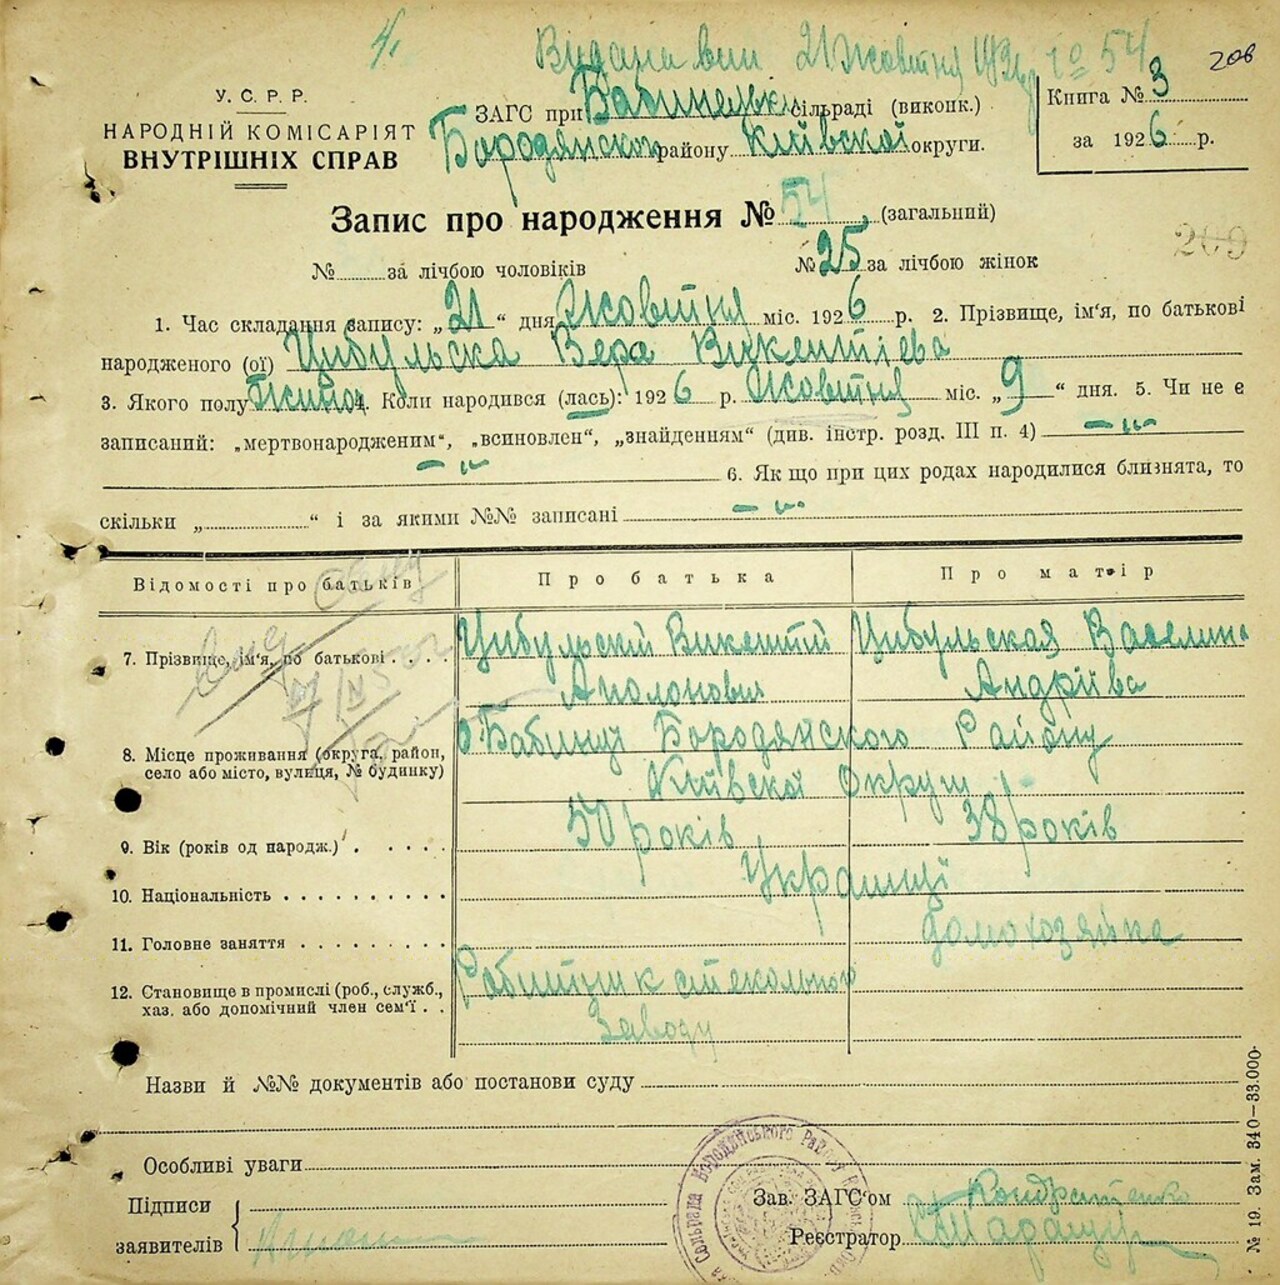 4.
Видана вип 21 Жовтня 192 г № 54
208
У. С. Р. Р.
НАРОДНІЙ КОМІСАРІЯТ
ВНУТРІШНІХ СПРАВ
ЗАГС при Бабинецькі сільраді (виконк.)
Бородянского району Київскої округи.
Книга № 3
за 1926 р.
Запис про народження № 54 (загальний)
209
№ за лічбою чоловіків № 25 за лічбою жінок
1. Час складання запису: „21“ дня Жовтня міс. 1926 р. 2. Прізвище, ім'я, по батькові
народженого (ої) Цибульска Вера Викентієва
3. Якого полу Жіноч. 4. Коли народився (лась): 1926 р. Жовтня міс. „9“ дня. 5. Чи не є
записаний: „мертвонародженим“, „всиновлен“, „знайденням“ (див. інстр. розд. III п. 4) — „ —
— „ — 6. Як що при цих родах народилися близнята, то
скільки „ “ і за якими №№ записані — „ —
Відомості про батьків Про батька Про матір
7. Прізвище, ім'я, по батькові Цибульский Викентій Цибульская Васелина
Аполонович Андріїва
8. Місце проживання (округа, район, село або місто, вулиця, № будинку) с Бабинці Бородянского Району
Київскої Округи
9. Вік (років од народж.) 50 років 38 років
10. Національність Українці
11. Головне заняття домохозяйка
12. Становище в промислі (роб., служб., хаз. або допомічний член сем'ї Рабитник стекольного
Заводу
Назви й №№ документів або постанови суду
Особливі уваги
Підписи
заявителів
Зав. ЗАГС'ом Кондратенко
Реєстратор
№ 19. Зам. 340—33.000